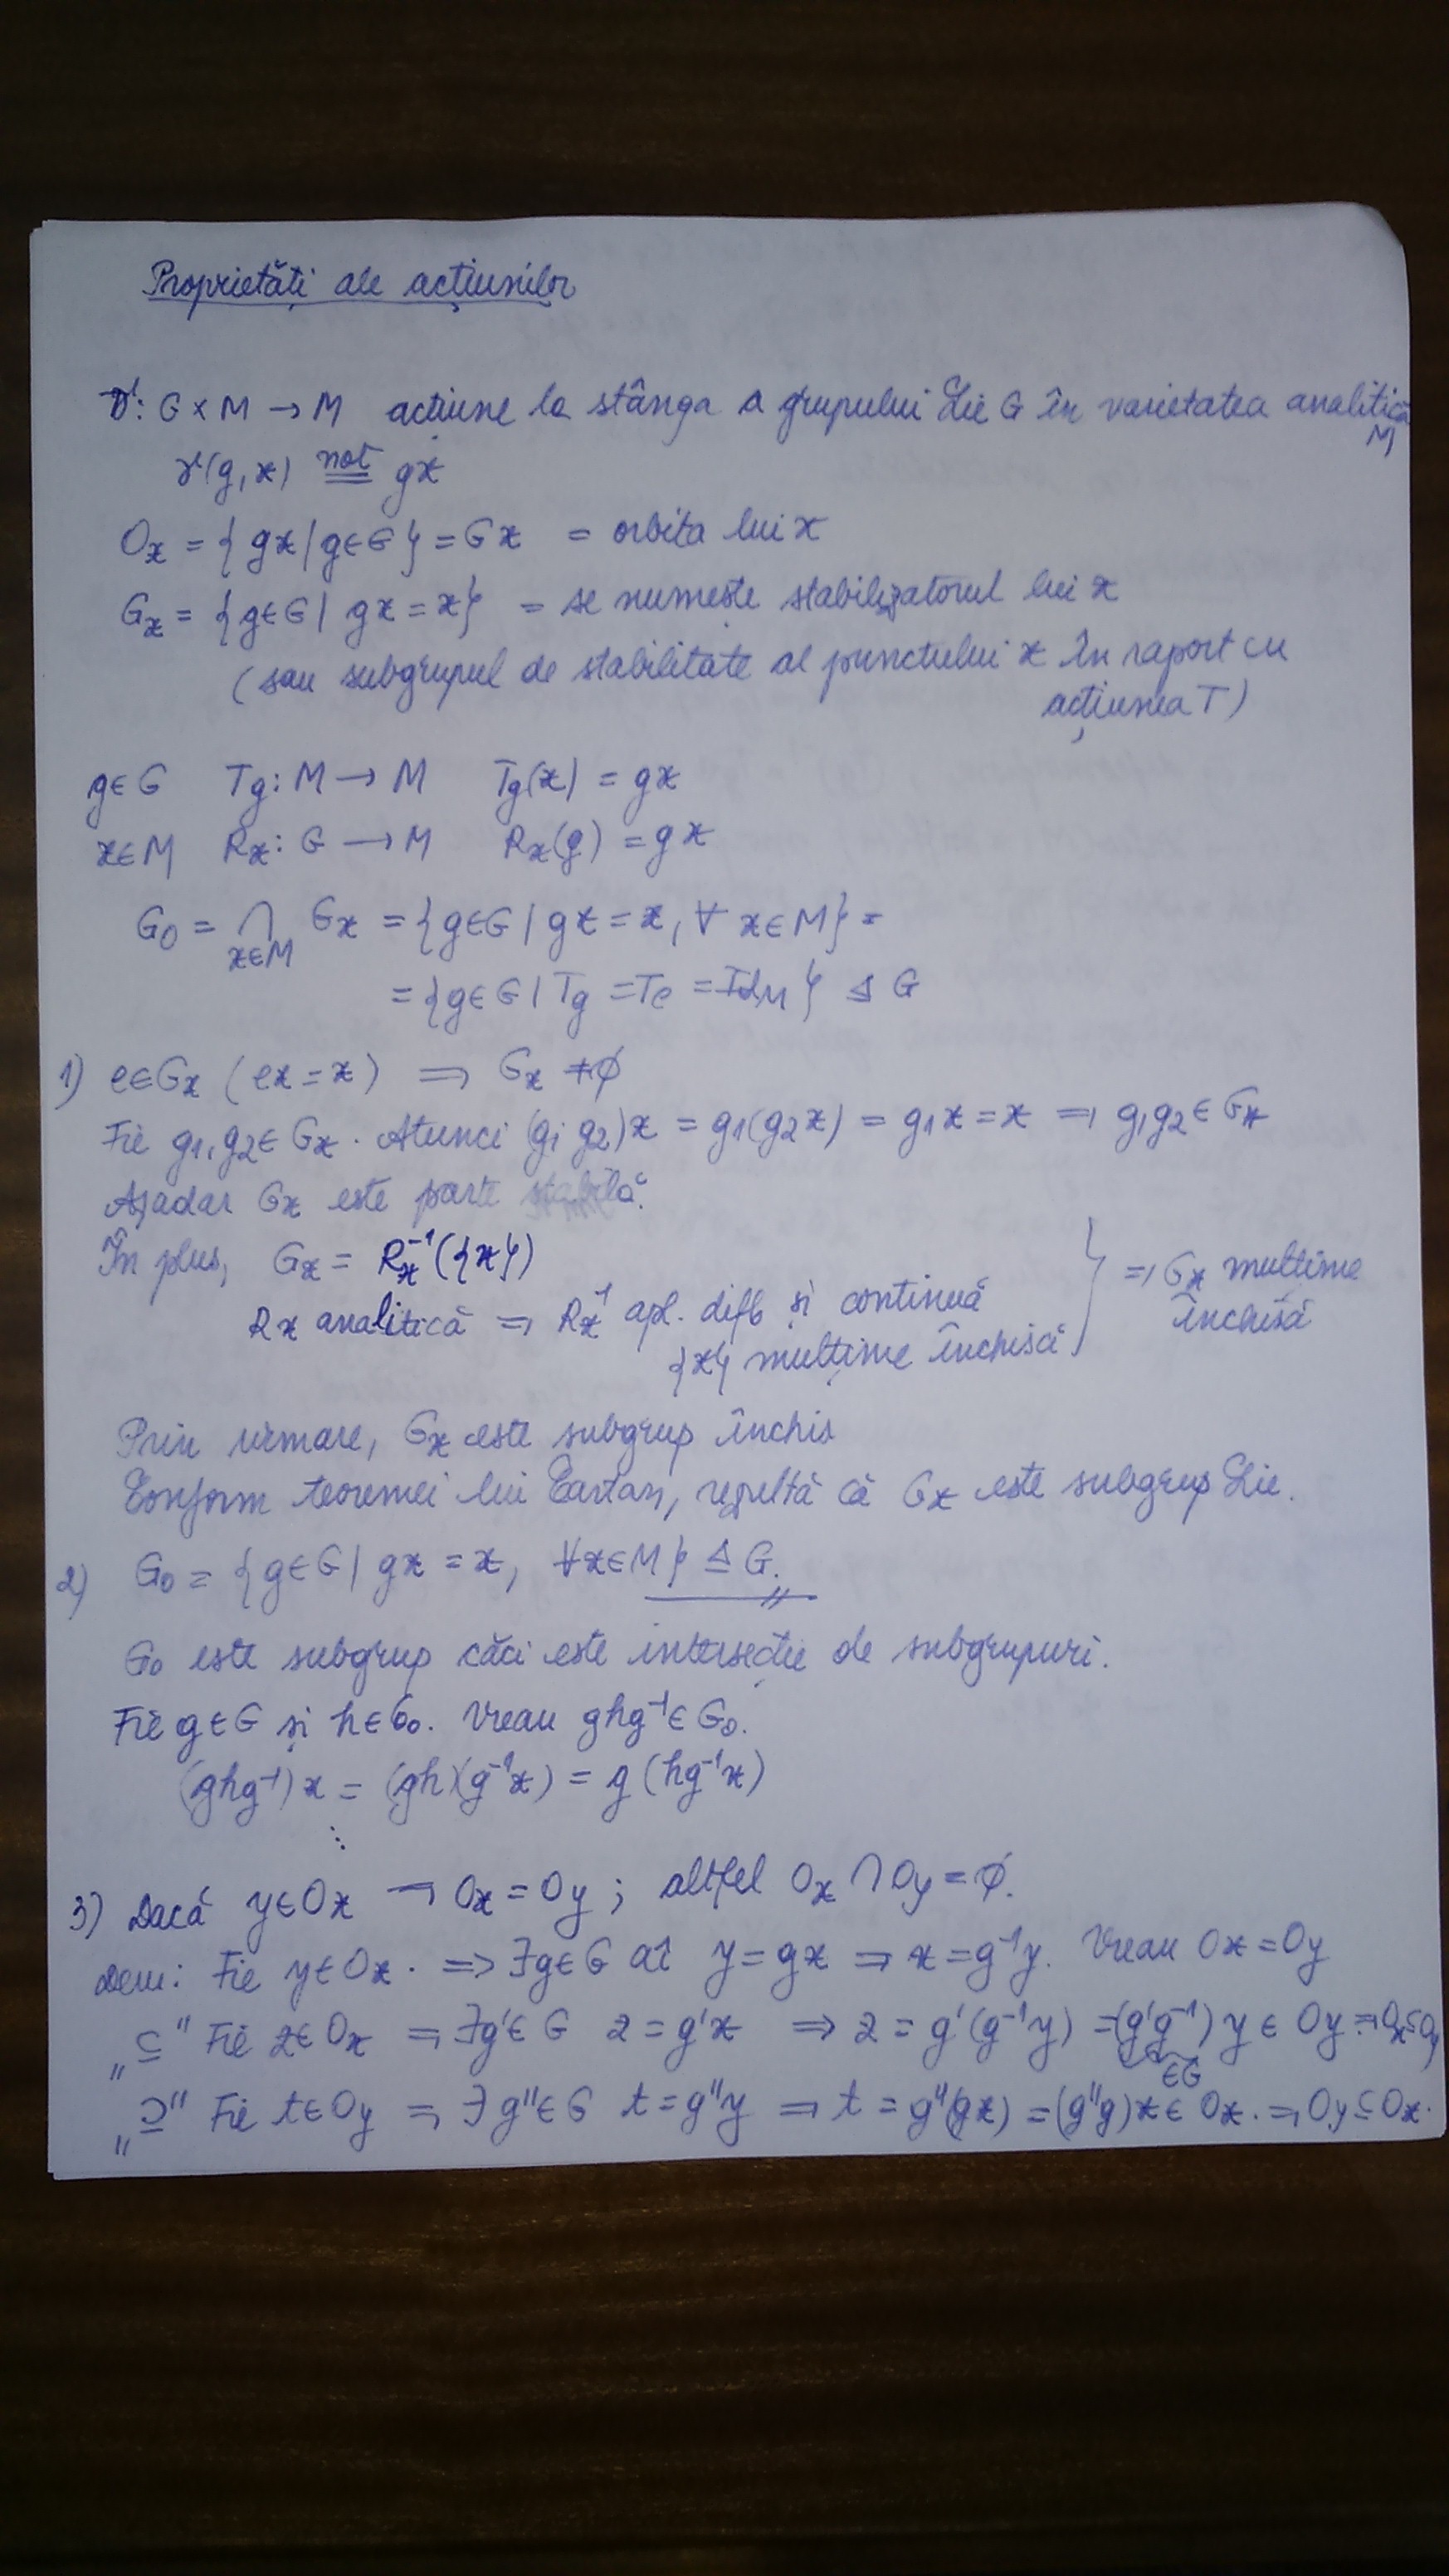 Proprietăți ale acțiunilor
γ: G × M → M acțiune la stânga a grupului Lie G în varietatea analitică M
γ(g, x) not= gx
Ox = {gx | g∈G} = Gx = orbita lui x
Gx = {g∈G | gx = x} = se numește stabilizatorul lui x
(sau subgrupul de stabilitate al punctului x în raport cu
acțiunea T)
g∈G Tg: M → M Tg(x) = gx
x∈M Rx: G → M Rx(g) = gx
G0 = ∩x∈M Gx = {g∈G | gx = x, ∀ x∈M} =
= {g∈G | Tg = Te = IdM} ⊴ G
1) e∈Gx (ex = x) ⇒ Gx ≠ ∅
Fie g1, g2∈Gx. Atunci (g1 g2)x = g1(g2x) = g1x = x ⇒ g1g2∈Gx
Așadar Gx este parte stabilă.
În plus, Gx = Rx⁻¹({x})
Rx analitică ⇒ Rx⁻¹ apl. dif și continuă } ⇒ Gx mulțime
{x} mulțime închisă închisă
Prin urmare, Gx este subgrup închis
Conform teoremei lui Cartan, rezultă că Gx este subgrup Lie.
2) G0 = {g∈G | gx = x, ∀x∈M} ⊴ G.
G0 este subgrup căci este intersecție de subgrupuri.
Fie g∈G și h∈G0. Vreau ghg⁻¹∈G0.
(ghg⁻¹)x = (gh)(g⁻¹x) = g(hg⁻¹x)
⋮
3) Dacă y∈Ox ⇒ Ox = Oy; altfel Ox ∩ Oy = ∅.
Dem: Fie y∈Ox. ⇒ ∃g∈G aî y = gx ⇒ x = g⁻¹y. Vreau Ox = Oy
„⊆" Fie z∈Ox ⇒ ∃g'∈G z = g'x ⇒ z = g'(g⁻¹y) = (g'g⁻¹)y ∈ Oy ⇒ Ox⊆Oy
∈G
„⊇" Fie t∈Oy ⇒ ∃g''∈G t = g''y ⇒ t = g''(gx) = (g''g)x ∈ Ox. ⇒ Oy⊆Ox.